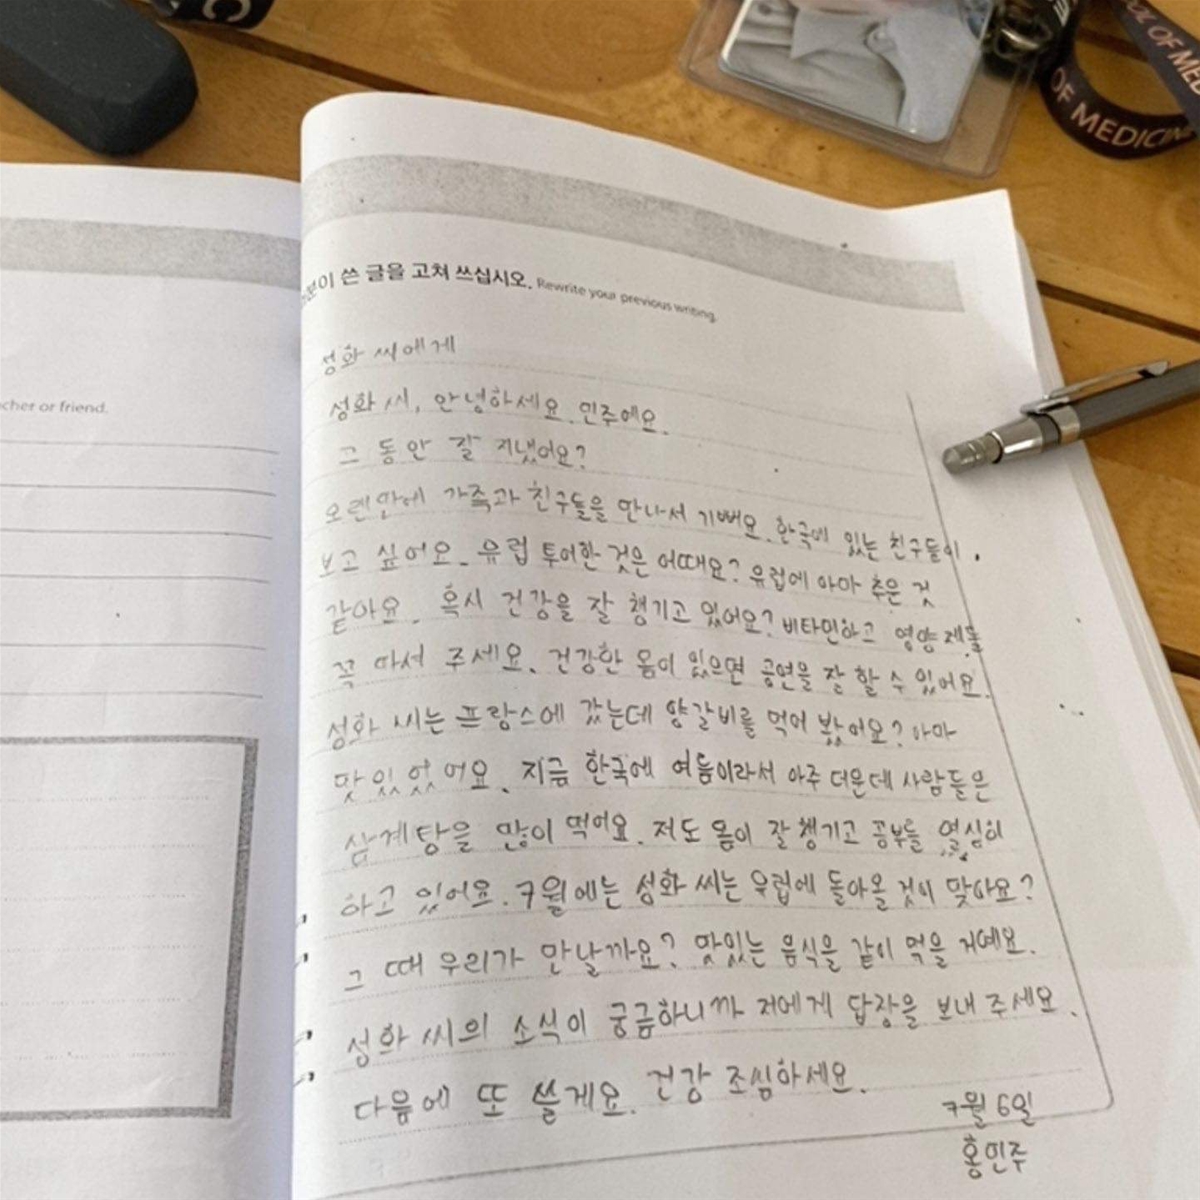 C
OL OF MED
OF MEDICINE
분이 쓴 글을 고쳐 쓰십시오. Rewrite your previous writing.
cher or friend.
성화 씨에게
성화 씨, 안녕하세요. 민주예요.
그 동안 잘 지냈어요?
오랜만에 가족과 친구들을 만나서 기뻐요. 한국에 있는 친구들이
보고 싶어요. 유럽 투어한 것은 어때요? 유럽에 아마 추운 것
같아요. 혹시 건강을 잘 챙기고 있어요? 비타민하고 영양제들
꼭 마셔 주세요. 건강한 몸이 있으면 공연을 잘 할 수 있어요.
성화 씨는 프랑스에 갔는데 양갈비를 먹어 봤어요? 아마
맛있었어요. 지금 한국에 여름이라서 아주 더운데 사람들은
삼계탕을 많이 먹어요. 저도 몸이 잘 챙기고 공부를 열심히
하고 있어요. 7월에는 성화 씨는 유럽에 돌아올 것이 맞아요?
그 때 우리가 만날까요? 맛있는 음식을 같이 먹을 거예요.
성화 씨의 소식이 궁금하니까 저에게 답장을 보내 주세요.
다음에 또 쓸게요. 건강 조심하세요.
7월 6일
홍민주